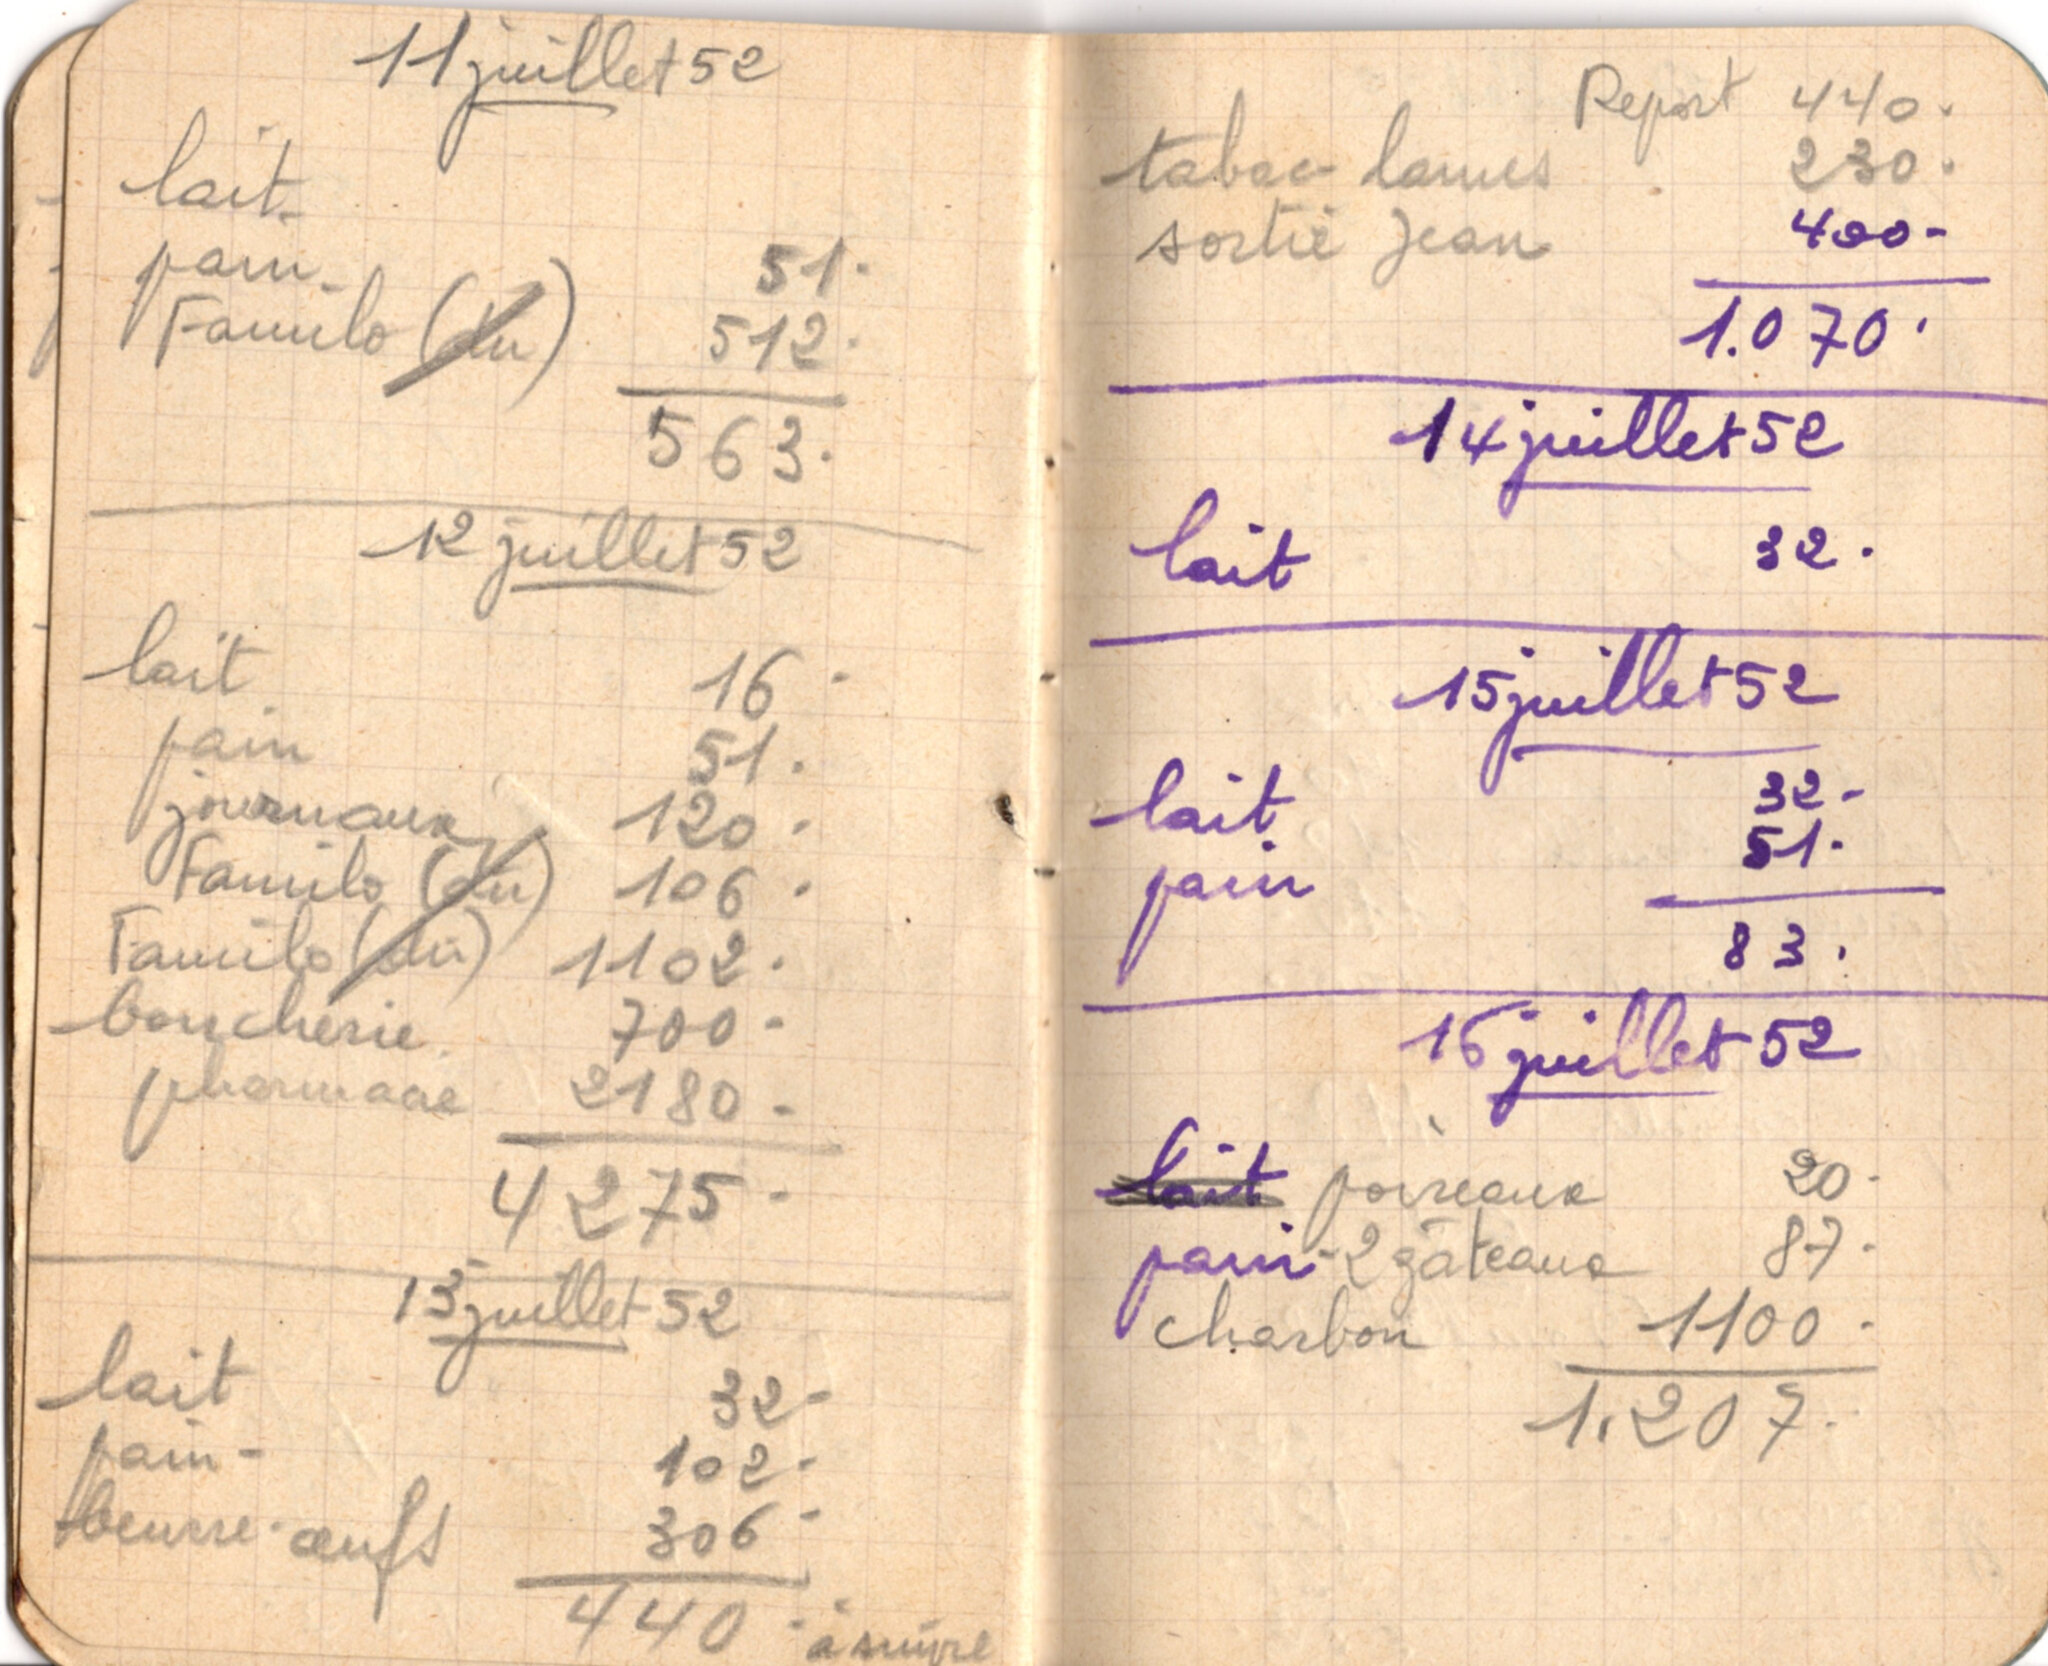 11 juillet 52
lait-
pain- 51.
Familo (dû) 512.
563.
12 juillet 52
lait 16 -
pain 51.
journaux 120 -
Familo (dû) 106 .
Familo (dû) 1102.
boucherie 700 -
pharmacie 2180 -
4275 -
13 juillet 52
lait 32-
pain- 102-
beurre-œufs 306-
440 - à suivre
Report 440.
tabac- lames 230.
sortie Jean 400-
1.070.
14 juillet 52
lait 32.
15 juillet 52
lait 32-
pain 51.
83.
16 juillet 52
lait poireaux 20-
pain-2 gâteaux 87-
charbon 1100 -
1.207.